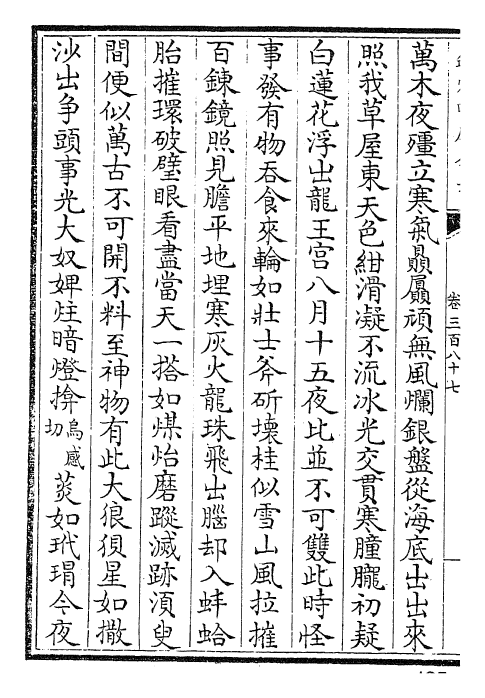 卷三百八十七
萬木夜殭立寒氣贔屭頑無風爛銀盤從海底出出來
照我草屋東天色紺滑凝不流冰光交貫寒朣朧初疑
白蓮花浮出龍王宫八月十五夜比並不可雙此時怪
事發有物吞食來輪如壯士斧斫壞桂似雪山風拉摧
百鍊鏡照見膽平地埋寒灰火龍珠飛出腦却入蚌蛤
胎摧環破璧眼看盡當天一搭如煤炲磨蹤滅跡湏臾
間便似萬古不可開不料至神物有此大狼狽星如撒
沙出争頭事光大奴婢炷暗燈揜烏感切菼如玳瑁今夜